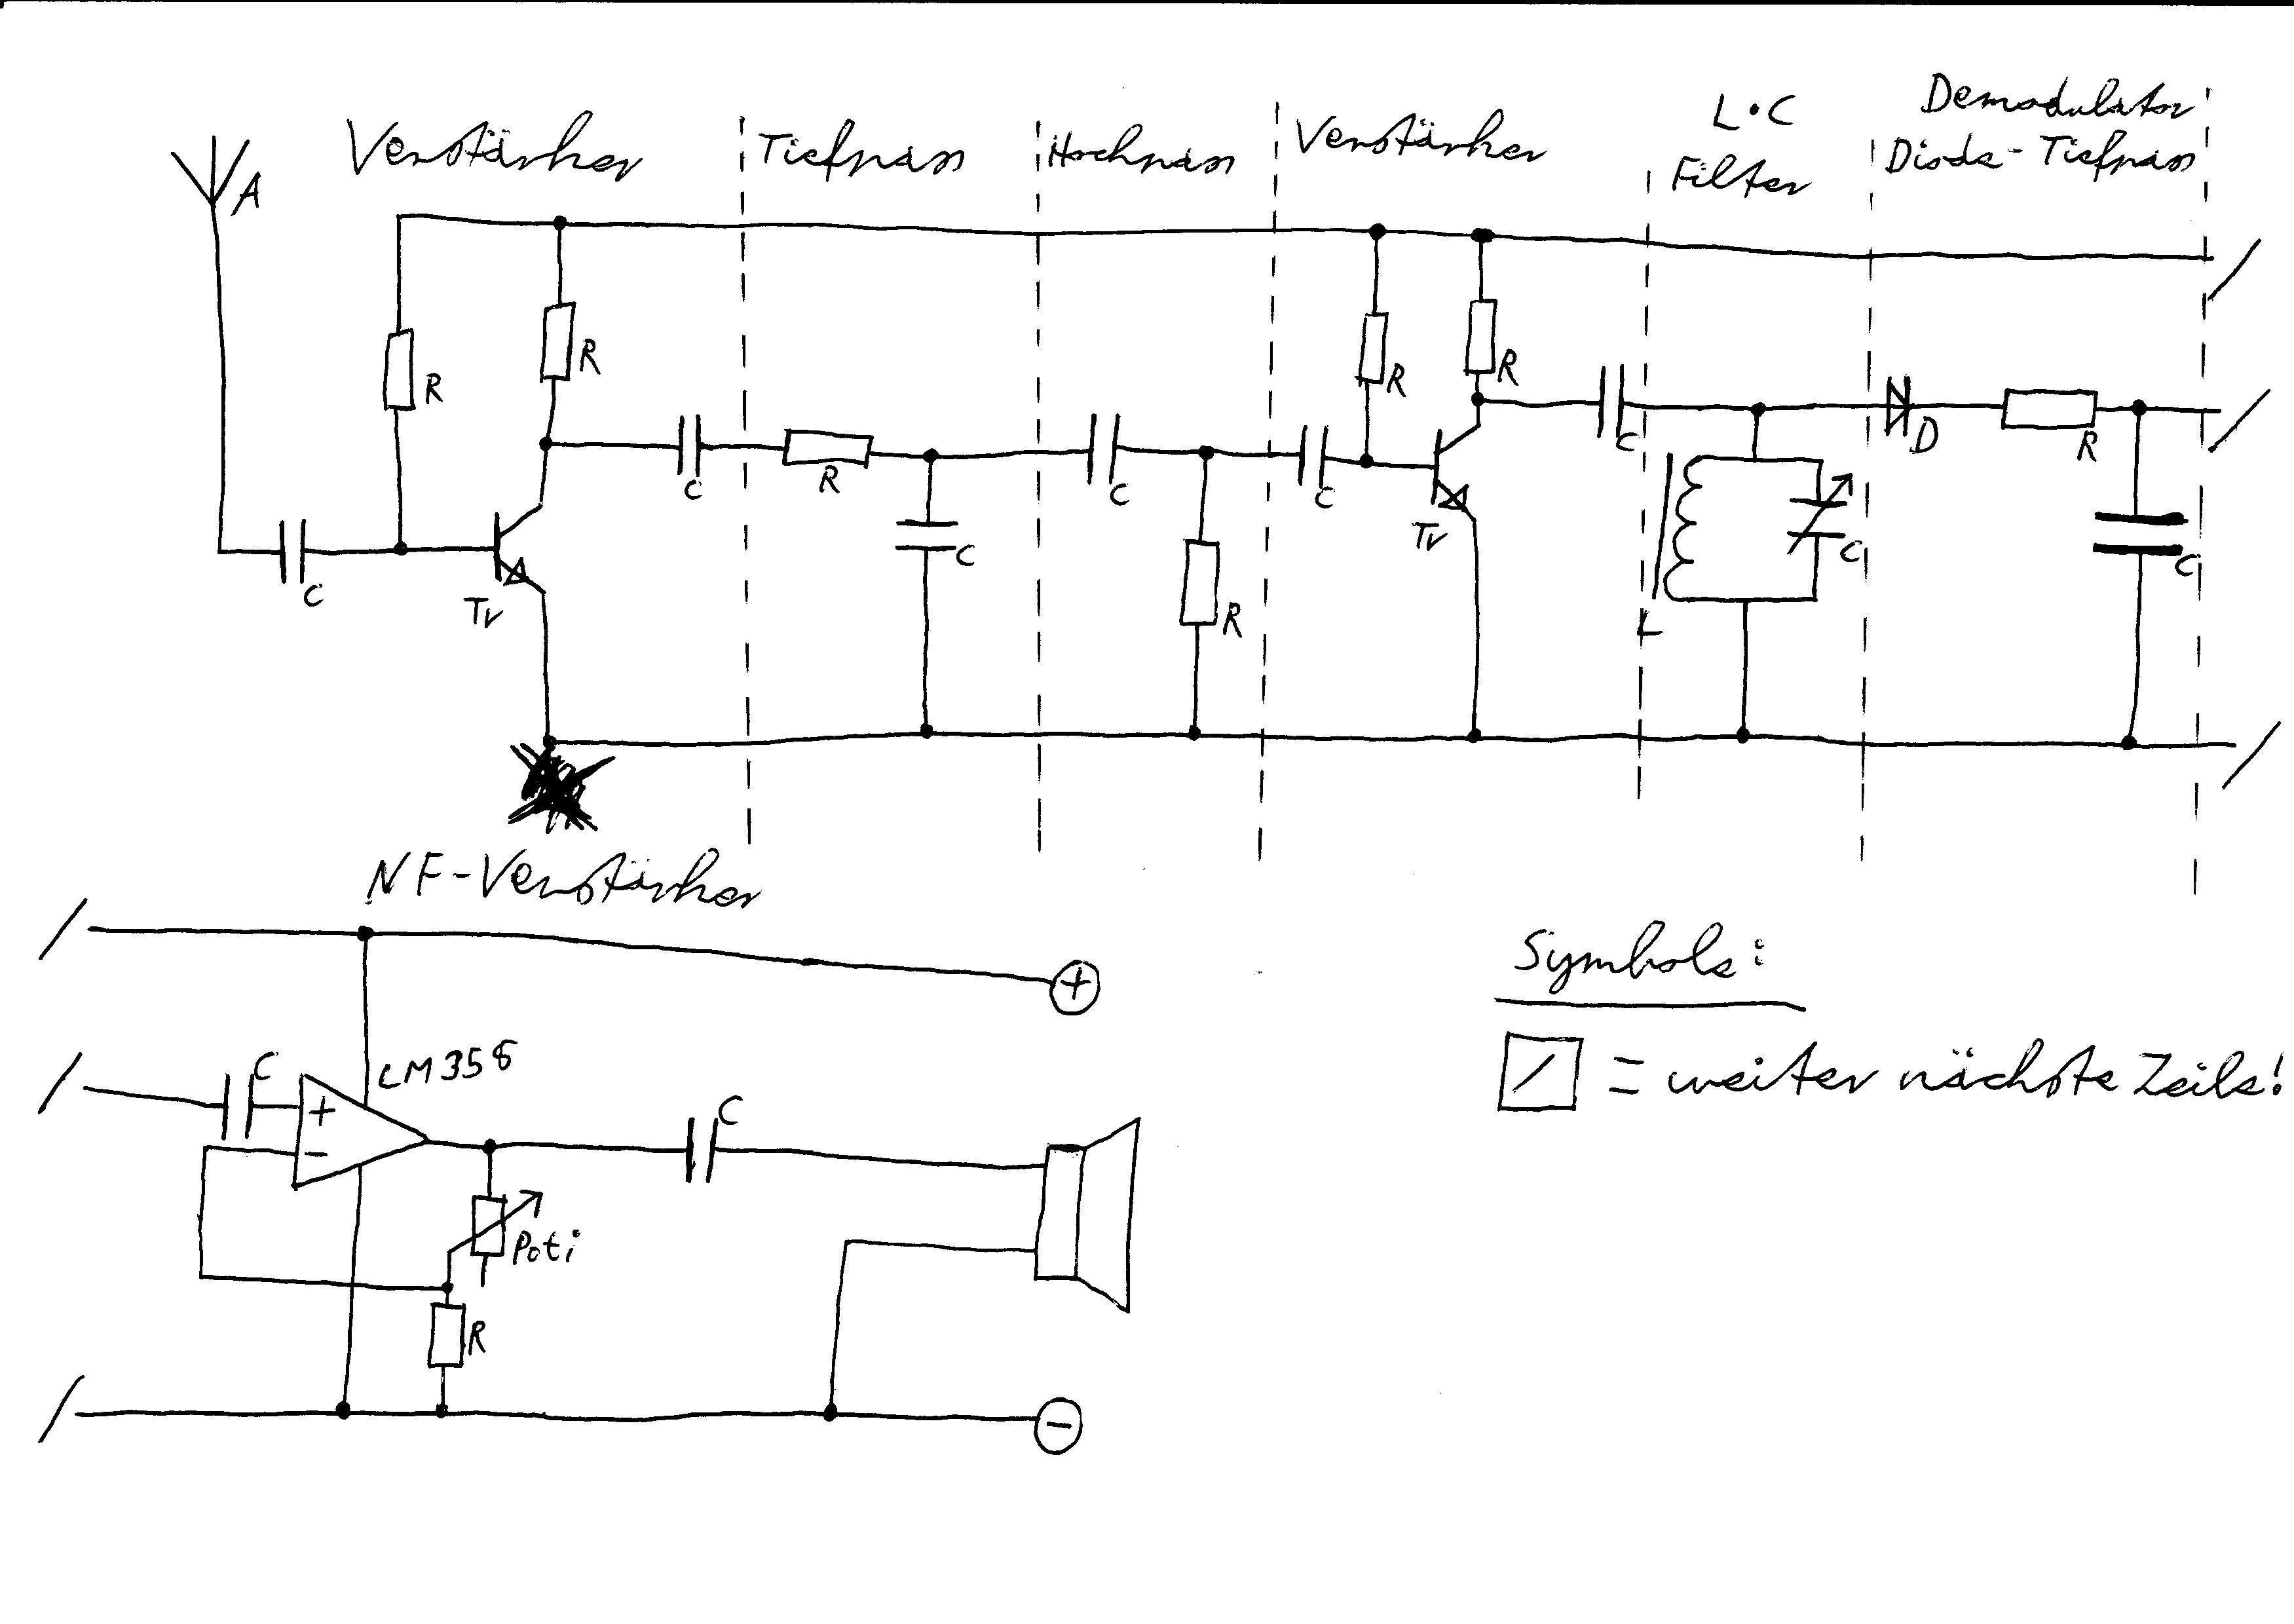 Verstärker
Tiefpass
Hochpass
Verstärker
L•C
Filter
Demodulator
Diode-Tiefpass
A
R
R
C
Tr
C
R
C
C
R
C
R
R
Tr
C
L
C
D
R
C
NF-Verstärker
+
C
LM358
+
-
C
Poti
R
-
Symbole:
/ = weiter nächste Zeile!